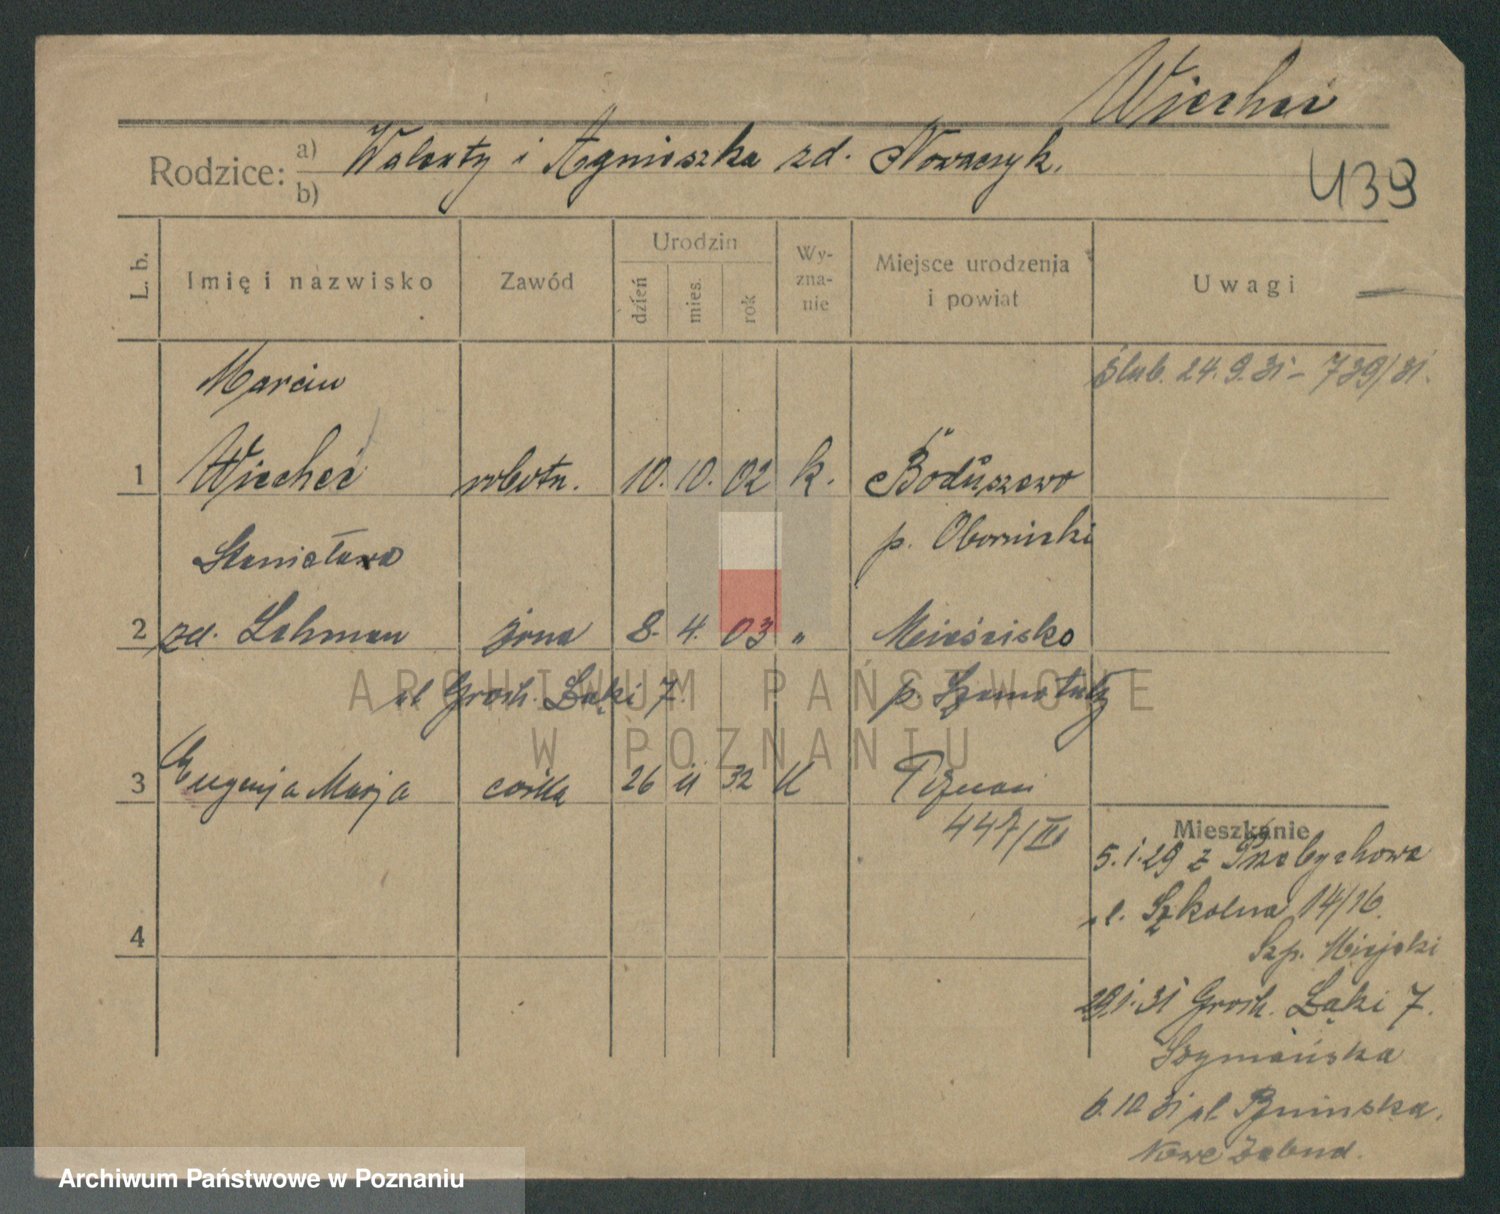 Wiecheć
Rodzice: a) Walenty i Agnieszka zd. Nowaczyk.
b)
439
L. b.
Imię i nazwisko
Zawód
Urodzin
dzień
mies.
rok
Wy-
zna-
nie
Miejsce urodzenia
i powiat
Uwagi
Marcin
Ślub. 24. 9. 31 - 739/31.
1 Wiecheć robotn. 10. 10. 02 k. Boduszewo
Stanisława p. Obornicki
2 zd. Lehman żona 8. 4. 03 " Mieścisko
ul Groch. Łąki 7 p. Szamotuły
3 Eugenja Marja córka 26 II 32 k Poznań
447/III
4
Mieszkanie
5. 1. 29 z Przebychowa
ul. Szkolna 14/16.
Szp. Miejski
29.1.31 Groch. Łąki 7.
Szymańska
6. 10 31 ul. Bnińska.
Nowe Zabud.
ARCHIWUM PAŃSTWOWE
W POZNANIU
Archiwum Państwowe w Poznaniu